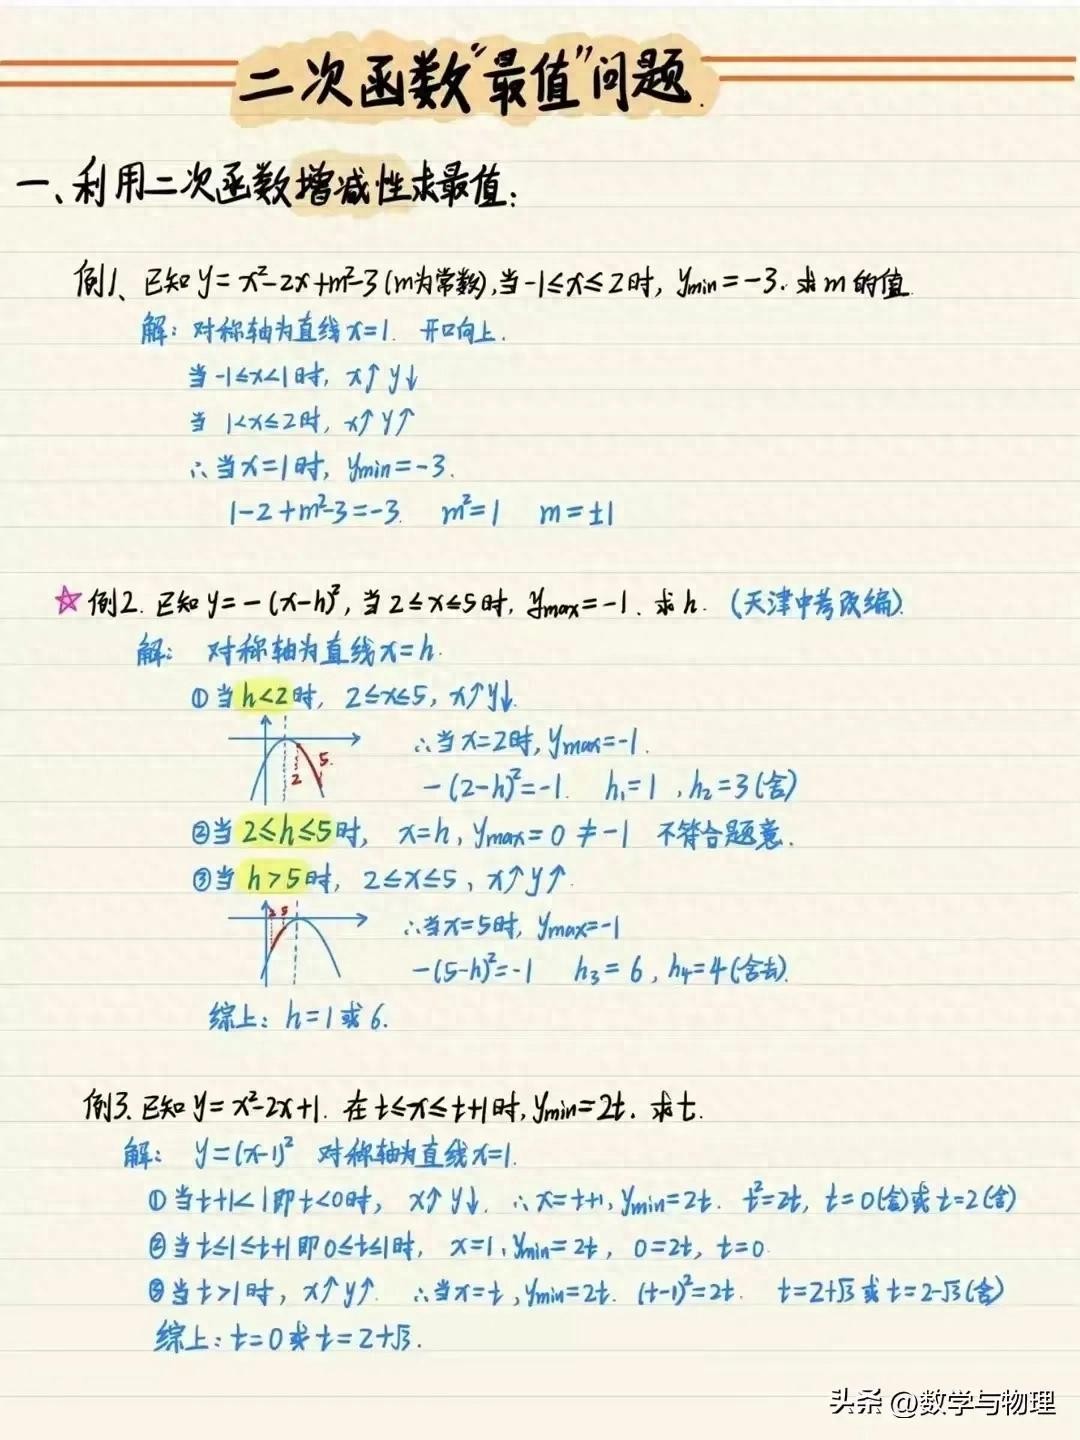 二次函数“最值”问题.
一、利用二次函数增减性求最值:
例1、已知 y=x²-2x+m²-3(m为常数),当-1≤x≤2时, ymin=-3. 求m的值.
解: 对称轴为直线x=1. 开口向上.
当-1≤x<1时, x↑ y↓
当 1<x≤2时, x↑ y↑
∴当x=1时, ymin=-3.
1-2+m²-3=-3. m²=1 m=±1
☆例2. 已知 y=-(x-h)², 当 2≤x≤5时, ymax=-1. 求h. (天津中考改编).
解: 对称轴为直线x=h.
①当 h<2时, 2≤x≤5, x↑y↓.
∴当x=2时, ymax=-1.
-(2-h)²=-1. h₁=1 , h₂=3(舍)
2 5.
②当 2≤h≤5时, x=h, ymax=0 ≠-1 不符合题意.
③当 h>5时, 2≤x≤5, x↑y↑.
2 5
∴当x=5时, ymax=-1
-(5-h)²=-1 h₃=6, h₄=4(舍去).
综上: h=1或6.
例3. 已知 y=x²-2x+1. 在 t≤x≤t+1时, ymin=2t. 求t.
解: y=(x-1)² 对称轴为直线x=1.
①当t+1<1即t<0时, x↑ y↓. ∴x=t+1, ymin=2t. t²=2t, t=0(舍)或t=2(舍)
②当t≤1≤t+1即0≤t≤1时, x=1, ymin=2t, 0=2t, t=0.
③当t>1时, x↑y↑. ∴当x=t, ymin=2t. (t-1)²=2t. t=2+√3或t=2-√3(舍)
综上: t=0或t=2+√3.
头条 @数学与物理